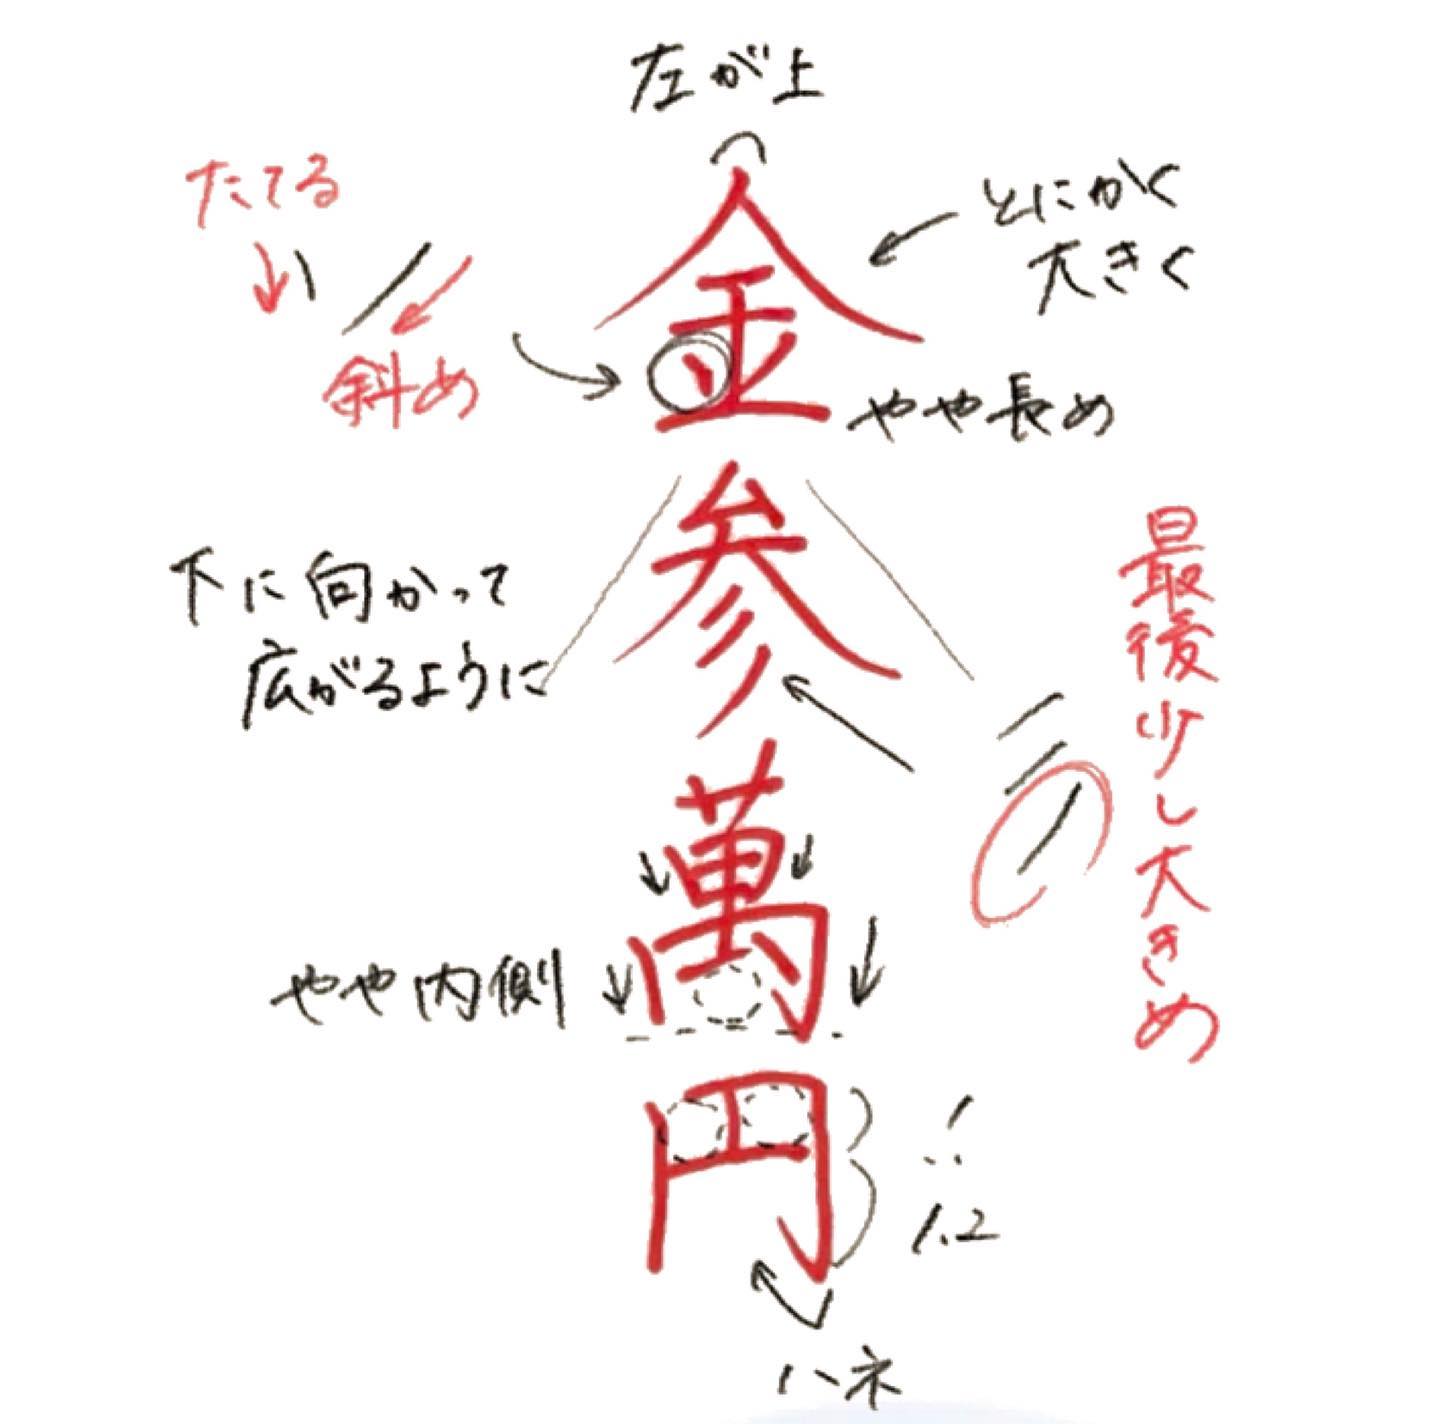 左が上
たてる
斜め
とにかく
大きく
金
やや長め
参
下に向かって
広がるように
最後少し大きめ
萬
やや内側
円
1
:
1.2
ハネ